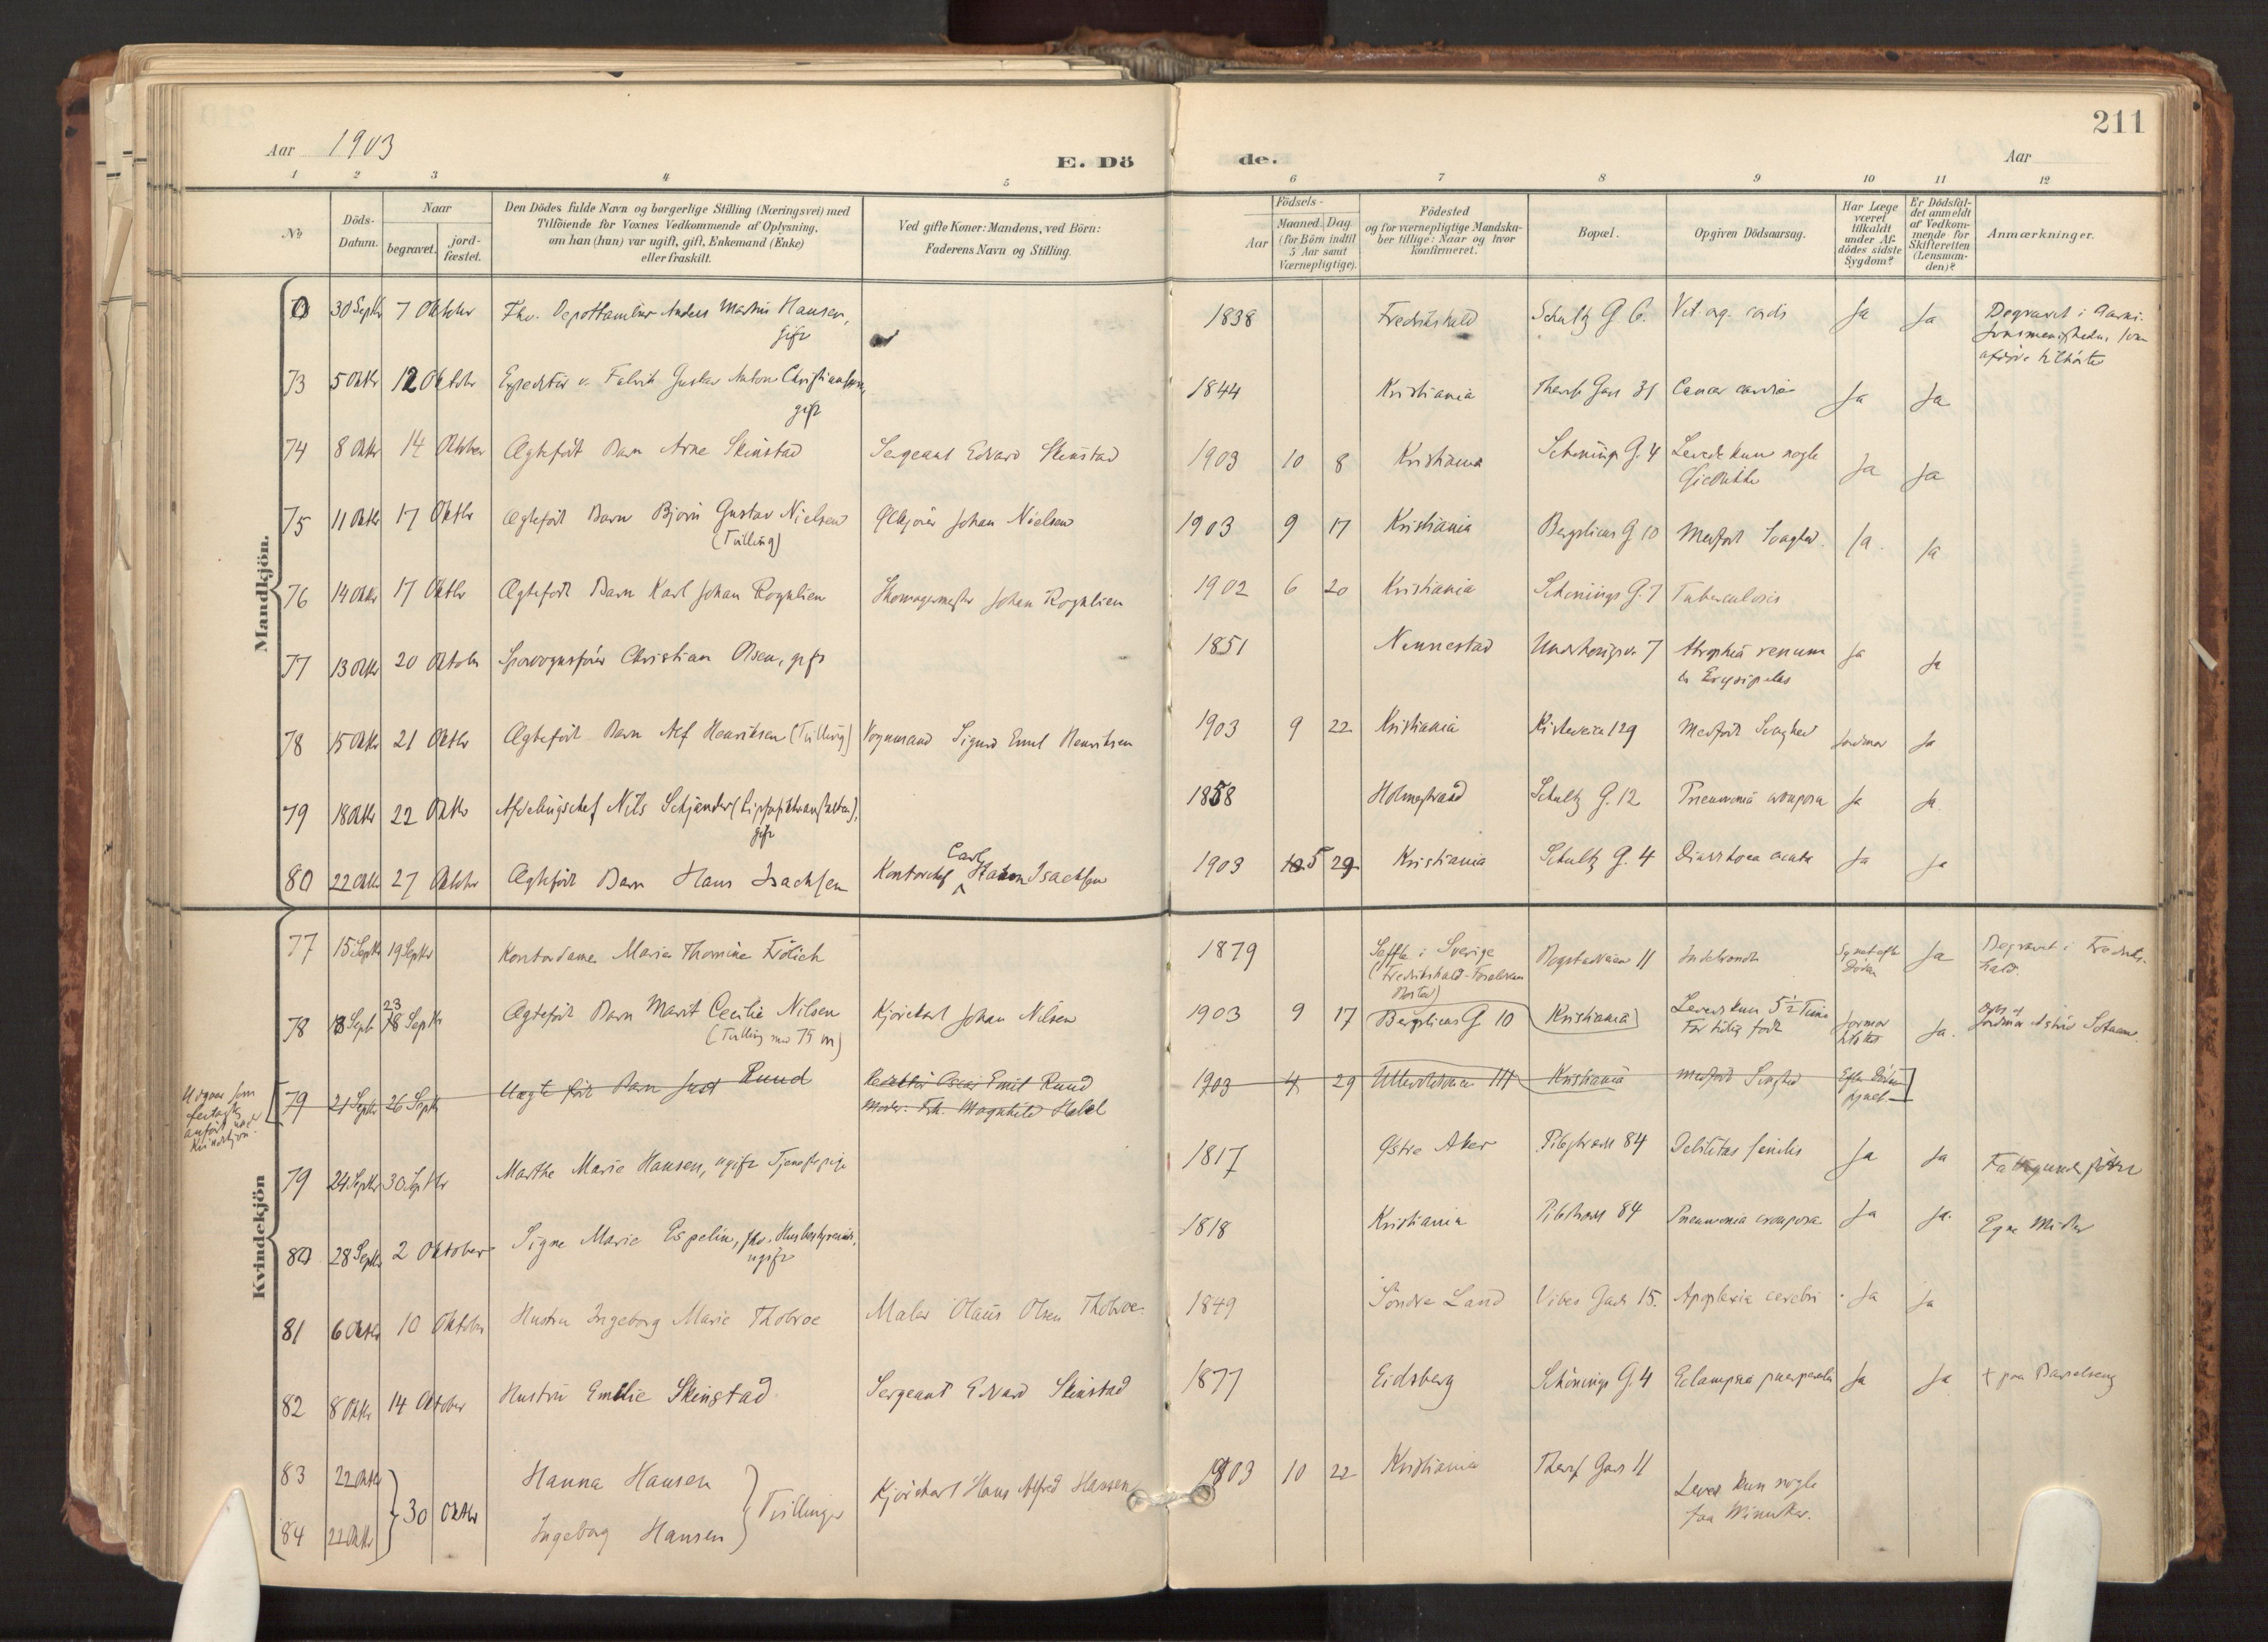 211
Aar 1903
E. Dö
de.
Aar
1 2 3 4 5 6 7 8 9 10 11 12
No.
Döds-
Datum.
Naar
begravet.
jord-
fæstet.
Den Dödes fulde Navn og borgerlige Stilling (Næringsvei) med
Tilföiende for Voxnes Vedkommende af Oplysning,
om han (hun) var ugift, gift, Enkemand (Enke)
eller fraskilt.
Ved gifte Koner: Mandens, ved Börn:
Faderens Navn og Stilling.
Födsels-
Aar
Maaned. Dag
(for Börn indtil
5 Aar samt
Værnepligtige).
Födested
og for værnepligtige Mandska-
ber tillige: Naar og hvor
Konfirmeret.
Bopæl.
Opgiven Dödsaarsag.
Har Læge
været
tilkaldt
under Af-
dödes sidste
Sygdom?
Er Dödsfal-
det anmeldt
af Vedkom-
mende for
Skifteretten
(Lensman-
den)?
Anmærkninger.
Mandkjön.
30 Septbr 7 Oktober Fhv. Anders Martin Hansen, 1838 Fredrikshald Schultz G 6. Vit. org. cordis Ja Ja Begravet i Garni-
gift
73 5 Oktbr 12 Oktober Expeditör v. Fabrik Gustav Anton Christiansen, 1844 Kristiania Thereses Gade 31 Cancer cardia Ja Ja
gift
74 8 Oktbr 14 Oktober Ægtefödt Barn Arne Skinstad Sergeant Edvard Skinstad 1903 10 8 Kristiania Schönings G. 4 Levede kun nogle Ja Ja
Öieblikke
75 11 Oktbr 17 Oktbr Ægtefödt Barn Björn Gustav Nielsen Johan Nielsen 1903 9 17 Kristiania Bergsliens G 10 Medfödt Svaghed. Ja. Ja
(Tvilling)
76 14 Oktbr 17 Oktbr Ægtefödt Barn Karl Johan Rognlien Skomagermester Johan Rognlien 1902 6 20 Kristiania Schönings G. 7 Tuberculosis
77 13 Oktbr 20 Oktober Sporvognsförer Christian Olsen, gift 1851 Nannestad 7 Atrophia renum Ja Ja
& Erysipelas
78 15 Oktbr 21 Oktbr Ægtefödt Barn Alf Henriksen (Tvilling) Vognmand Sigurd Emil Henriksen 1903 9 22 Kristiania Kirkeveien 129 Medfödt Svaghed Jordmor Ja
79 18 Oktbr 22 Oktbr Afdelingschef Nils Schjander 1858 Holmestrand Schultz G. 12 Pneumonia crouposa Ja Ja
gift
80 22 Oktbr 27 Oktober Ægtefödt Barn Hans Isachsen Kontorchef Carl Isachsen 1903 5 29 Kristiania Schultz G. 4 Diarrhoea acuta Ja Ja
Kvindekjön
77 15 Septbr 19 Septbr Kontordame Marie Thomine Frölich 1879 Seffle i Sverige Bogstadveien 11 Synet efter Ja Begravet i Fredriks-
Döden hald.
78 18 Septbr 23 Septbr Ægtefödt Barn Marit Cecilie Nilsen Kjörekarl Johan Nilsen 1903 9 17 Bergsliens G 10 Kristiania Levede kun 5½ Time Ja.
(Tvilling med 75 m) For tidlig födt
79 21 Septbr 26 Septbr Uægtefödt Barn Just Ruud Emil Ruud 1903 4 29 Ullevoldsveien 111 Kristiania Medfödt Svaghed Efter Döden
synet
79 24 Septbr 30 Septbr Marthe Marie Hansen, ugift Tjenestepige 1817 Østre Aker Pilestræde 84 Debilitas senilis Ja Ja
80 28 Septbr 2 Oktober Signe Marie Espelin, fhv. Husbestyrerinde, 1818 Kristiania Pilestræde 84 Pneumonia crouposa Ja Ja. Egne Midler
ugift
81 6 Oktbr 10 Oktober Hustru Ingeborg Marie Thobroe Maler Olaus Olsen Thobroe. 1849 Söndre Land Vibes Gade 15. Apoplexia cerebri Ja Ja
82 8 Oktbr 14 Oktober Hustru Emilie Skinstad Sergeant Edvard Skinstad 1877 Eidsberg Schönings G. 4 Eclampsia puerperalis Ja Ja + paa Barselseng
83 22 Oktbr 30 Oktbr Hanna Hansen Tvillinger Kjörekarl Hans Alfred Hansen 1903 10 22 Kristiania Thereses Gade 11 Leved kun nogle
84 22 Oktbr Ingeborg Hansen faa Minutter.